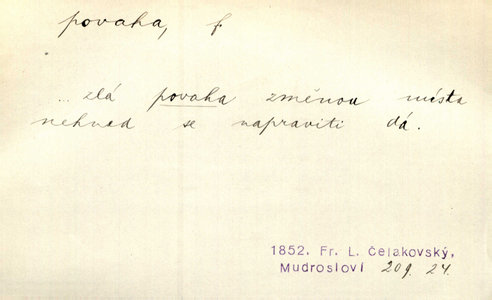 povaha, f
... zlá povaha změnou místa
nehned se napraviti dá.
1852. Fr. L. Čelakovský,
Mudrosloví 209. 24.